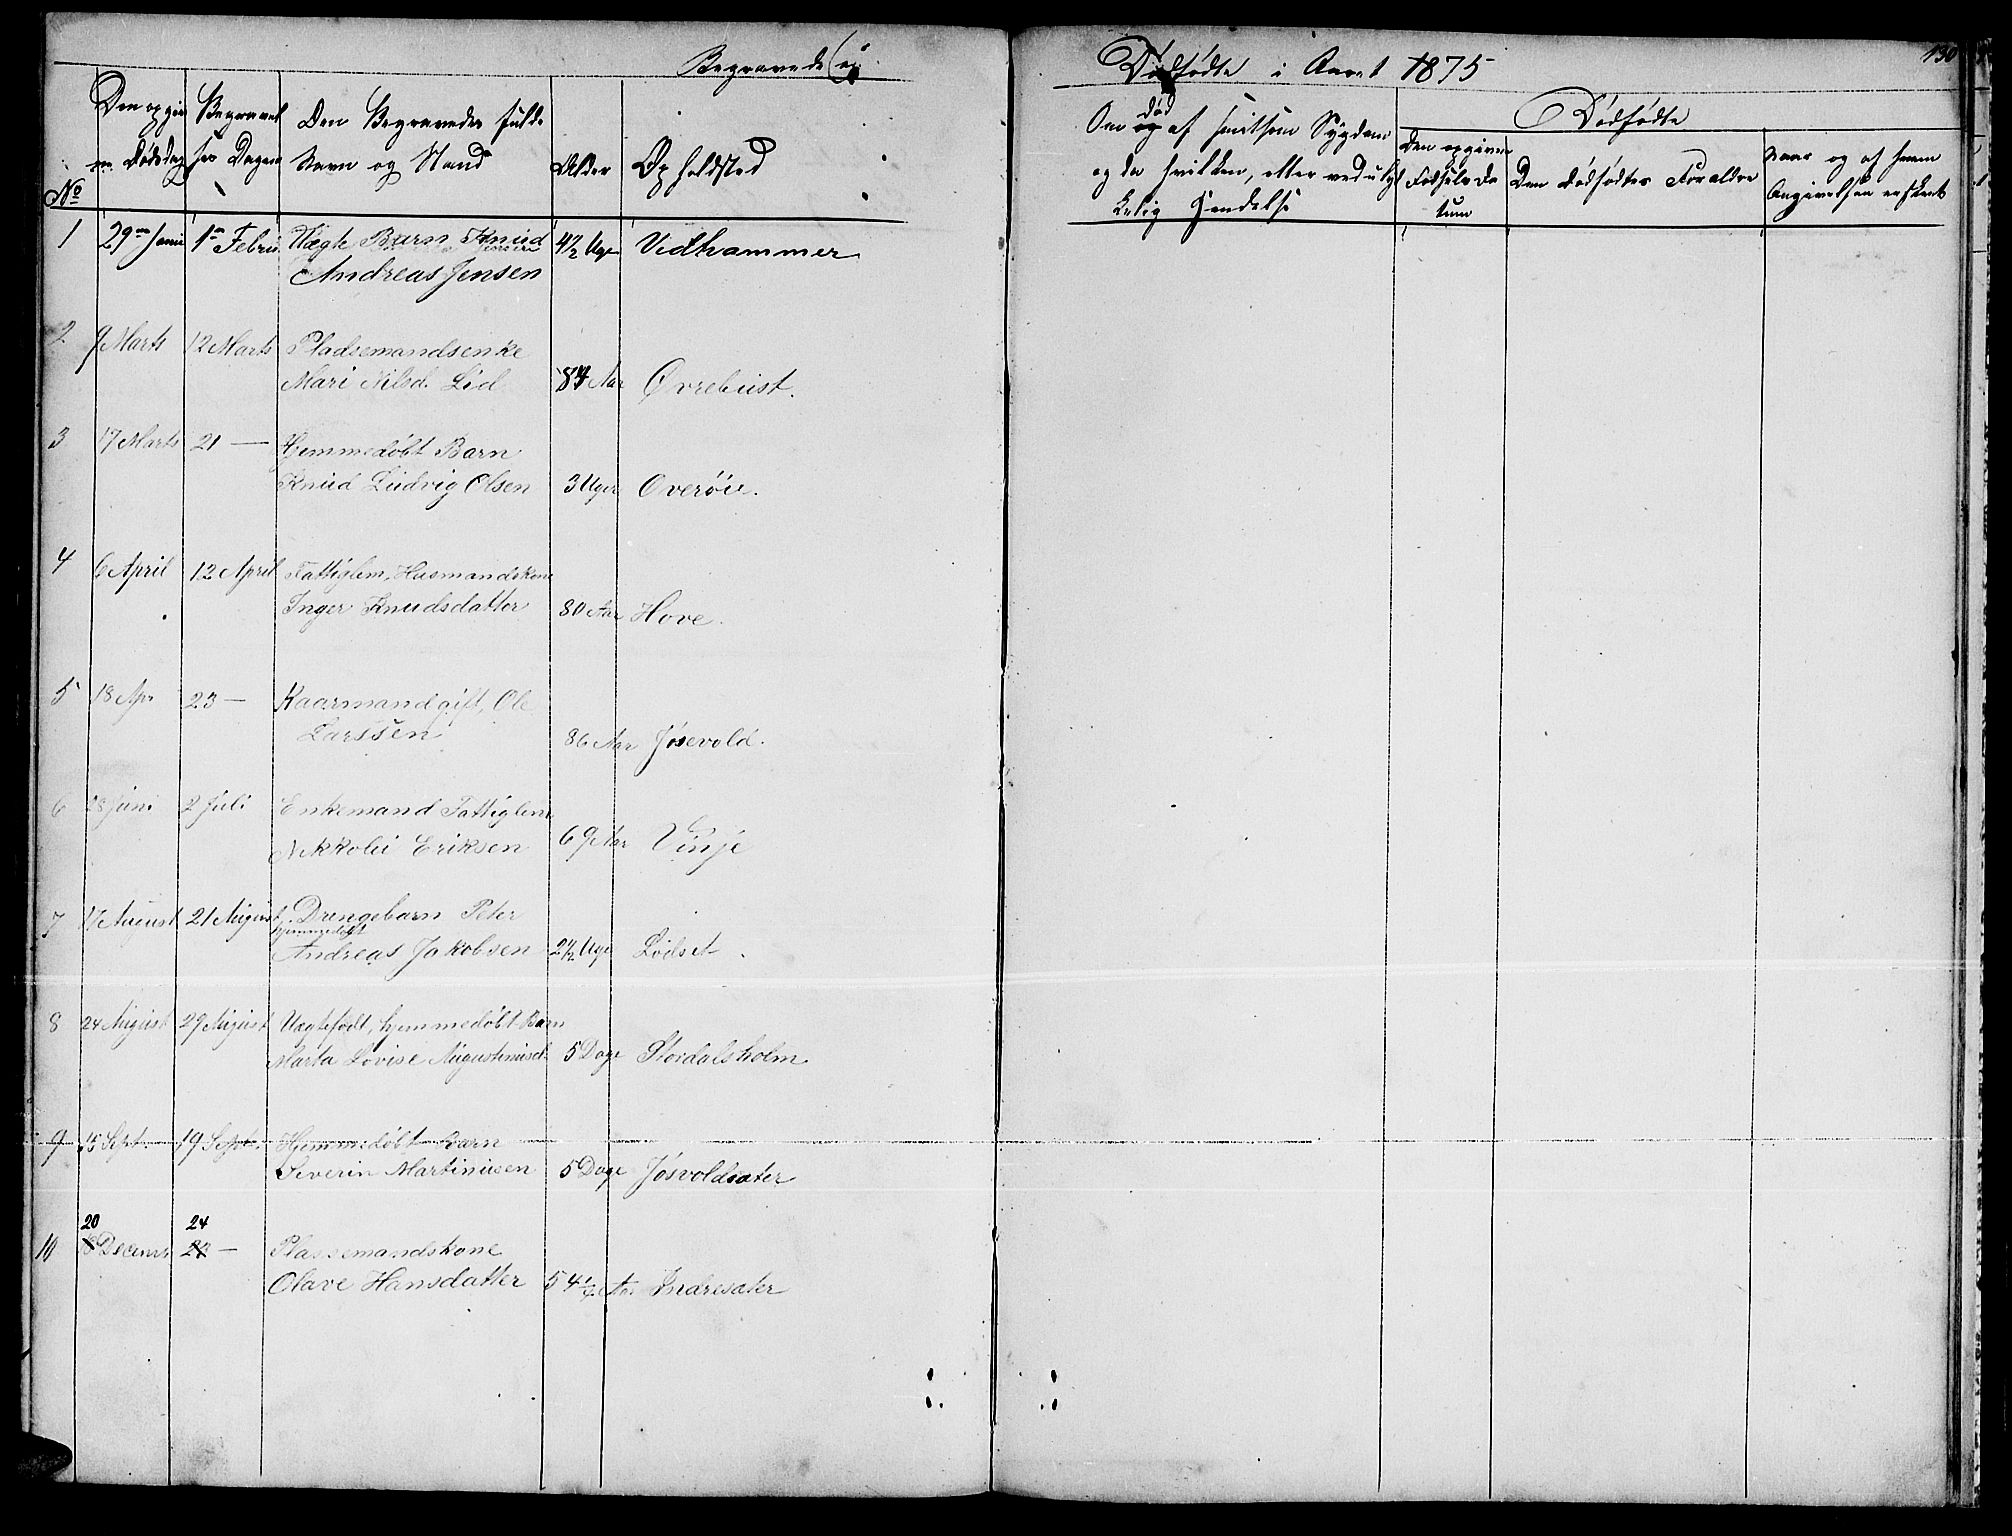 Begravede og
Dødfødte i Aaret 1875
130
No
Den opgiv
ne Dødsdag
Begravel
ses Dagen
Den Begravedes fulde
Navn og Stand
Alder
Opholdsted
Om død af smitsom Sygdom
og da hvilken, eller ved ulyk
kelig Hændelse
Dødfødte
Den opgivne
Fødsels Da
tum
Den dødfødtes Forældre
Naar og af hvem
Angivelsen er skeet
1 29de Janu 1ste Febru Uægte Barn Knud 4½ Uge Vedhammer
Andreas Jensen
2 9 Marts 12 Marts Pladsemandsenke
Mari Nilsd. Lid 84 Aar Øvrebust.
3 17 Marts 21 — Hjemmedøbt Barn
Knud Ludvig Olsen 3 Uger Overøie.
4 6 April 12 April Fattiglem, Husmandskone
Inger Knudsdatter 80 Aar Hove.
5 18 Apr 23 — Kaarmand gift, Ole
Larssen 86 Aar Jøsevold.
6 28 Juni 2 Juli Enkemand Fattiglem
Nikkolai Eriksen 69 Aar Vinje
7 17 August 21 August Drengebarn Peter
hjemmedøbt
Andreas Jakobsen 2½ Uge Lødset
8 24 August 29 August Uægtefødt, hjemmedøbt Barn
Marta Lovise Augustinusd. 5 Dage Stordalsholm
9 15 Sept. 19 Septr. Hjemmedøbt Barn
Severin Martinusen 5 Dage Jøsvoldsæter
20 24
10 18 Decemr 23 — Plassemandskone
Olave Hansdatter 54½ Aar Indresæter